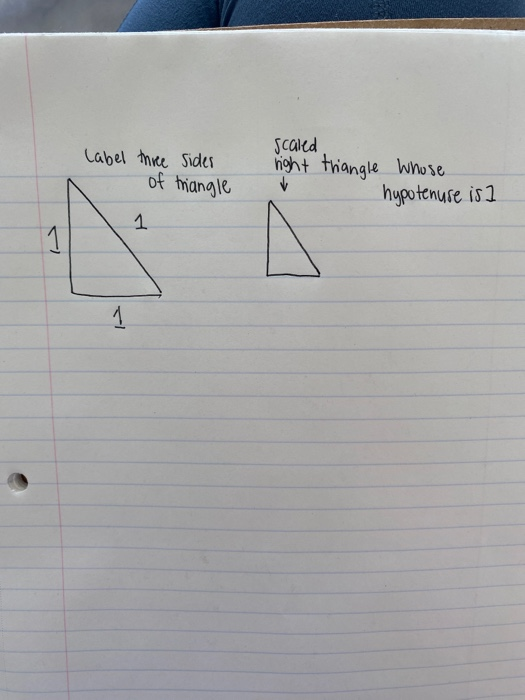 Label three sides
of triangle
1
1
1
scaled
right triangle whose
hypotenuse is 1